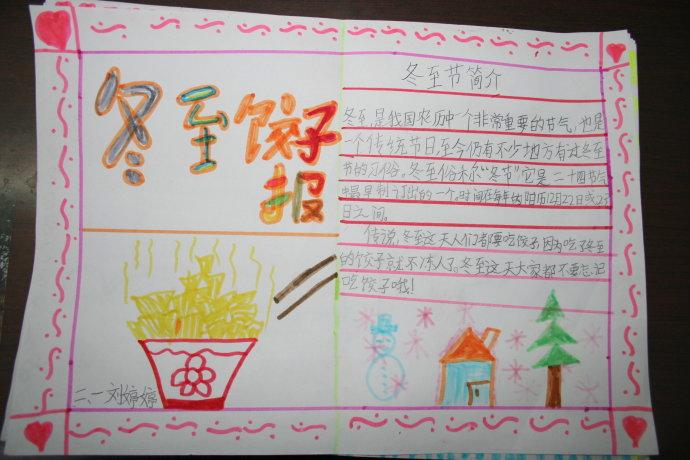 冬至饺子
报
冬至节简介
冬至,是我国农历中一个非常重要的节气,也是
一个传统节日,至今仍有不少地方有过冬至
节的习俗。冬至俗称“冬节”它是二十四节气
中最早制订出的一个。时间在每年的阳历12月22日或23
日之间。
传说,冬至这天人们都要吃饺子,因为吃了冬至
的饺子就不冻人了。冬至这天大家都不要忘记
吃饺子哦!
二、一 刘婷婷